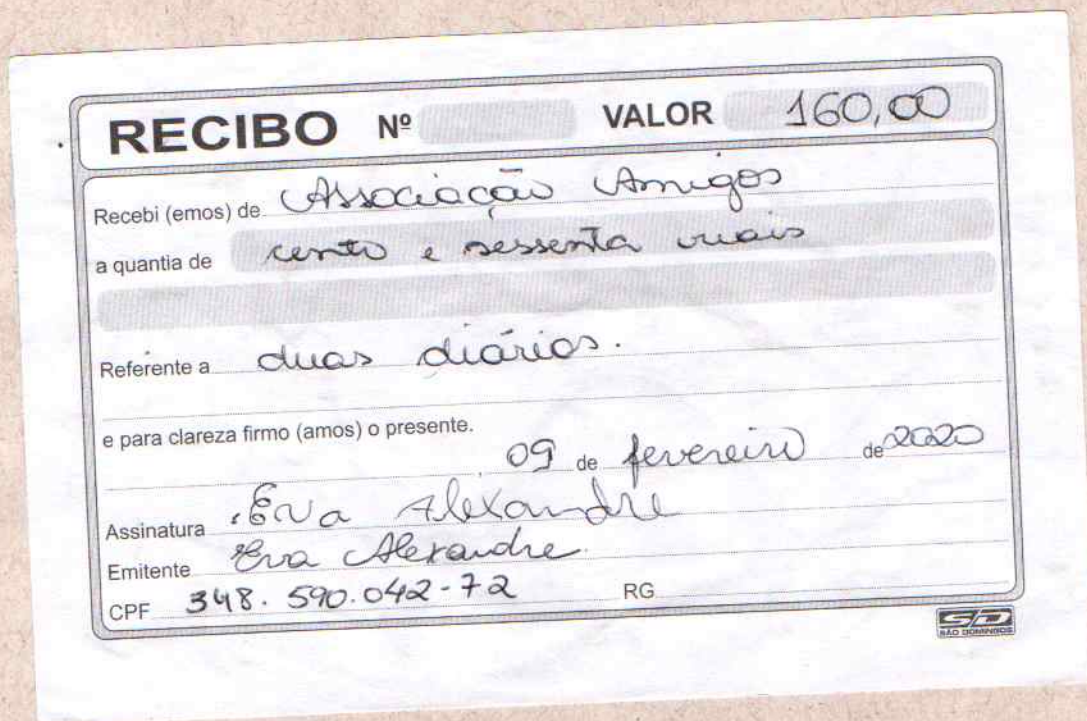 RECIBO Nº VALOR 160,00
Recebi (emos) de Associação Amigos
a quantia de cento e sessenta reais
Referente a duas diárias.
e para clareza firmo (amos) o presente.
09 de fevereiro de 2020
Assinatura Eva Alexandre
Emitente Eva Alexandre
CPF 348.590.042-72 RG
SD
SÃO DOMINGOS